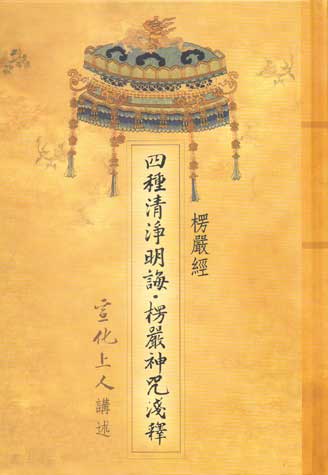 楞嚴經
四種清淨明誨·楞嚴神咒淺釋
宣化上人講述